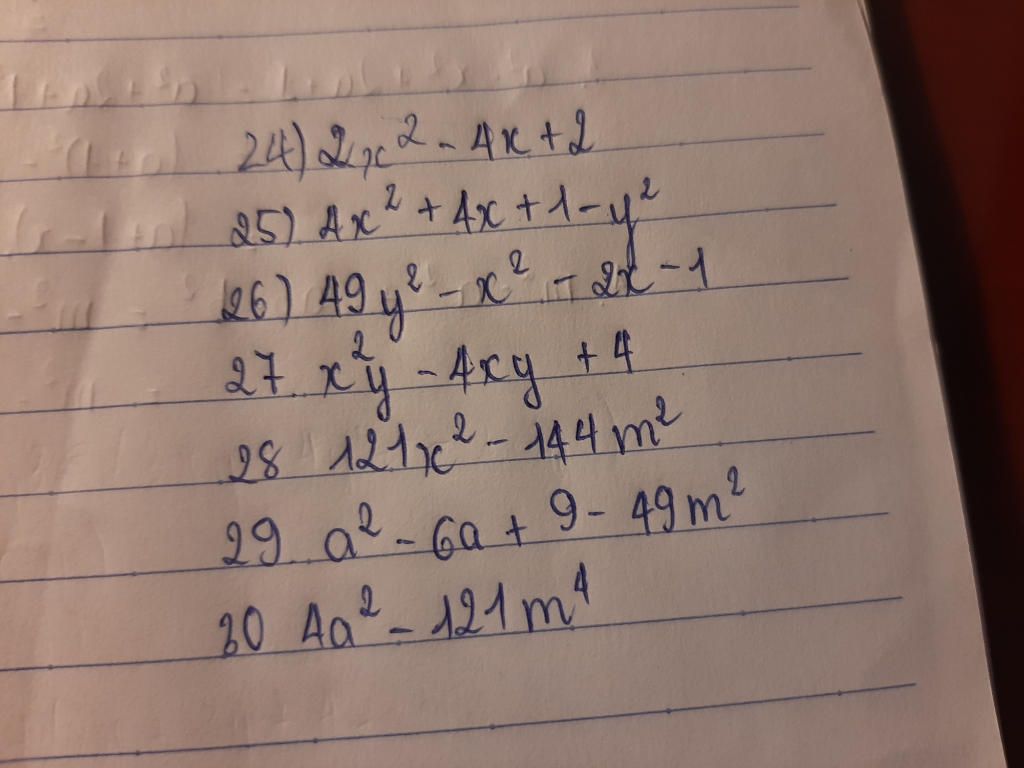 24) 2x² - 4x + 2
25) 4x² + 4x + 1 - y²
26) 49y² - x² - 2x - 1
27 x²y - 4xy + 4
28 121x² - 144m²
29 a² - 6a + 9 - 49m²
30 4a² - 121m⁴